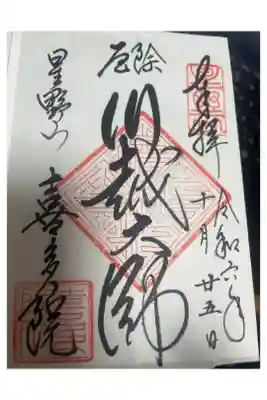 奉拝
令和六年
十月廿五日
厄除
川越大師
星野山
喜多院